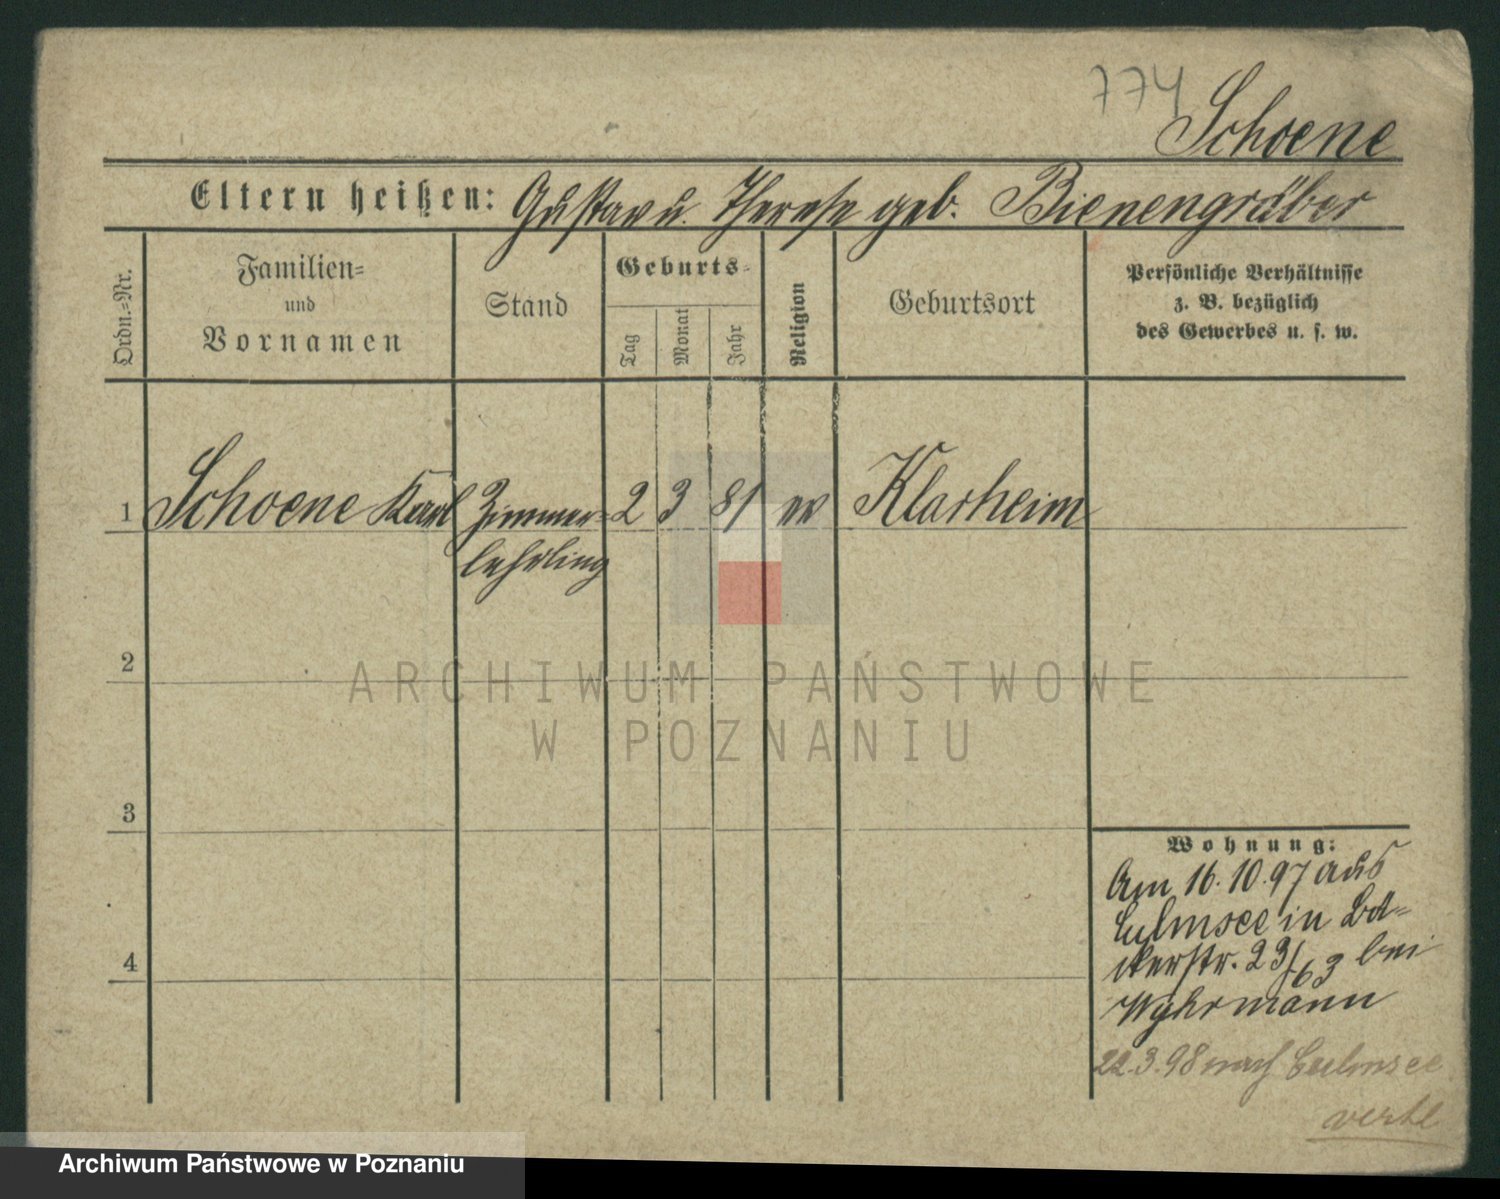 774
Schoene
Eltern heißen: Gustav u. Therese geb. Bienengräber
Ordn.=Nr.
Familien=
und
Vornamen
Stand
Geburts=
Tag
Monat
Jahr
Religion
Geburtsort
Persönliche Verhältnisse
z. B. bezüglich
des Gewerbes u. s. w.
1 Schoene Karl Zimmer= 2 3 81 ev Klarheim
lehrling
2
3
4
ARCHIWUM PAŃSTWOWE
W POZNANIU
Wohnung:
Am 16.10.97 aus
Culmsee in Bä=
ckerstr. 23/63 bei
22.3.98 nach Culmsee
Archiwum Państwowe w Poznaniu